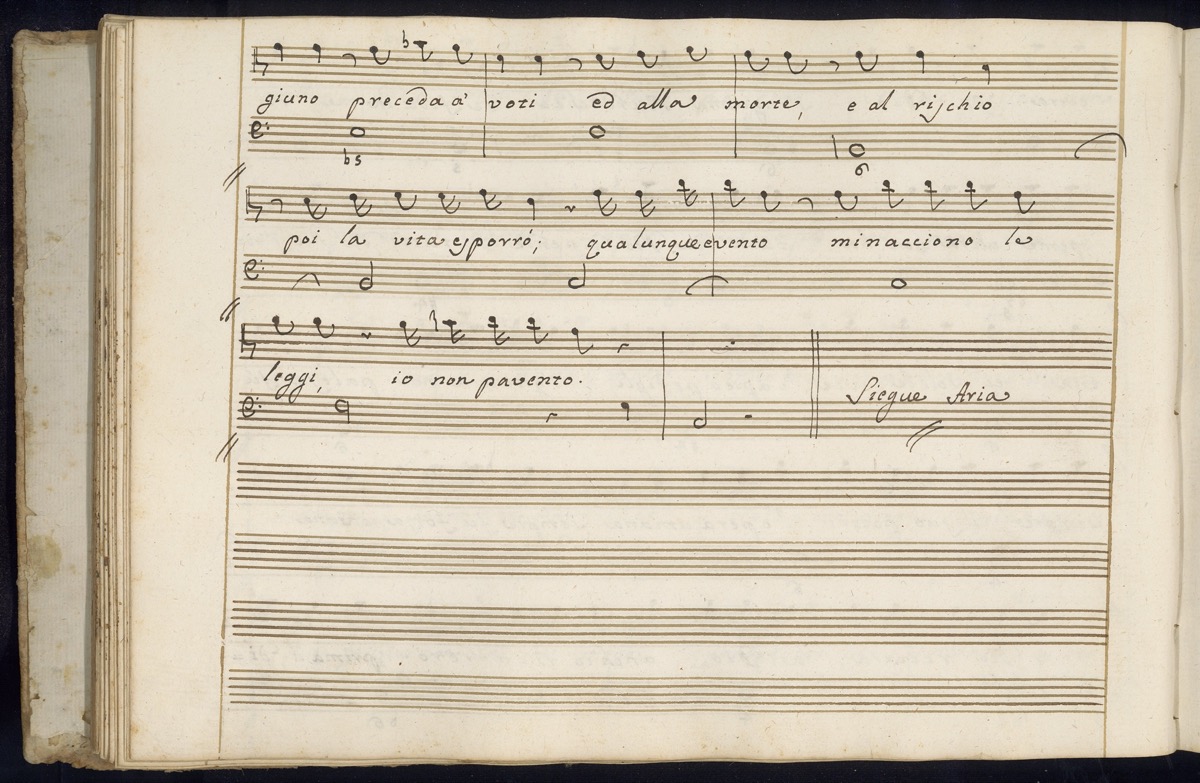 giuno preceda a' voti ed alla morte, e al rischio
b5 6
poi la vita esporrò; qualunque evento minacciono le
leggi, io non pavento.
Siegue Aria